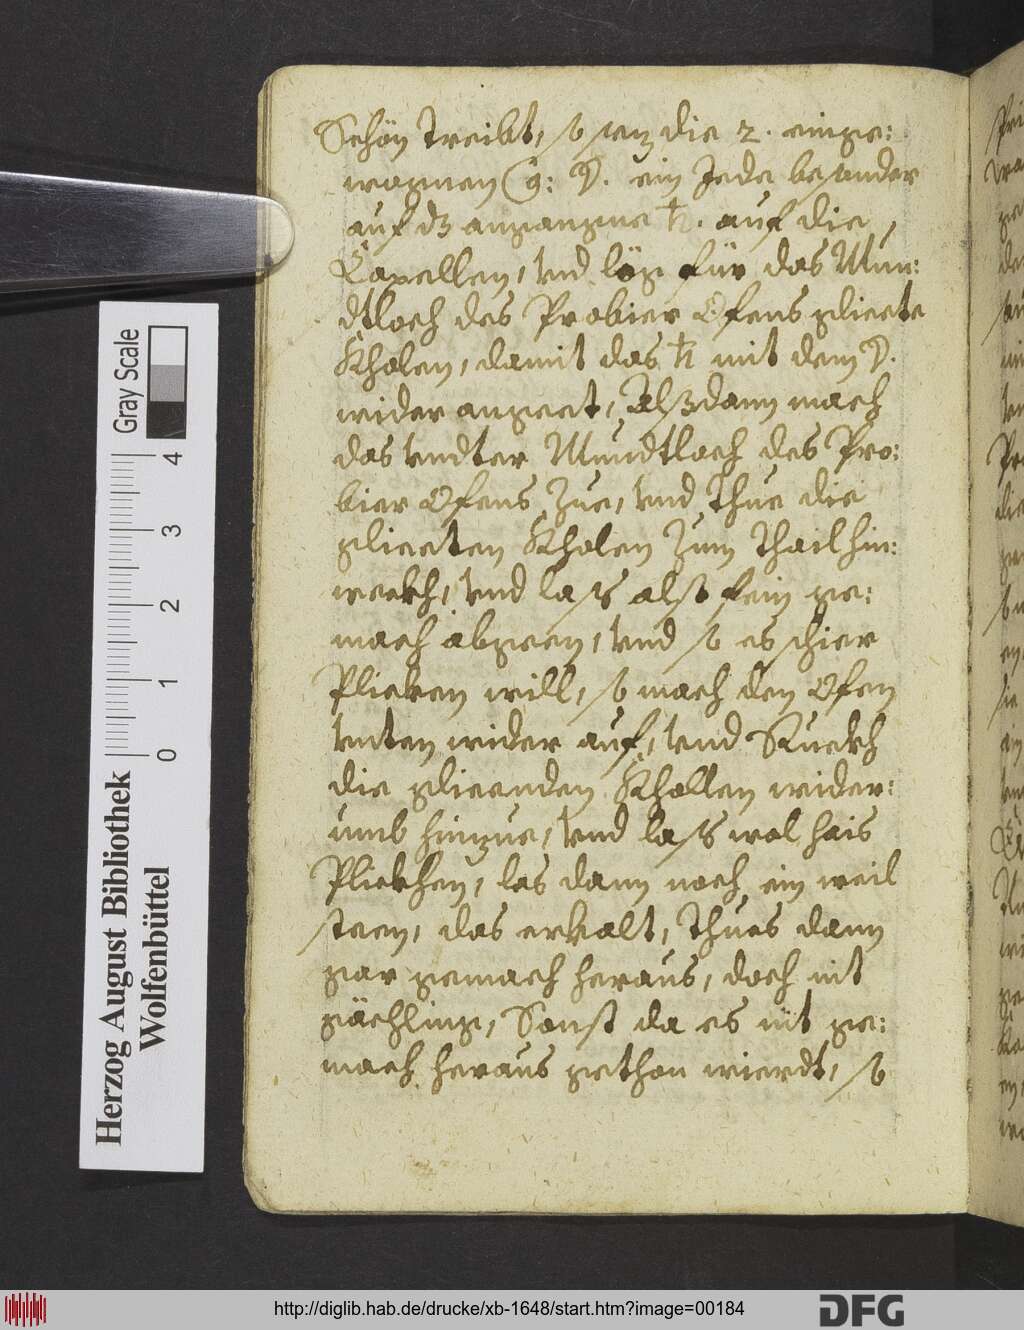 Schön treibt, so sez die 2. einge:
wognen C g: ☽. ein Jede besonder
auf dz angangne ♄. auf die
Capellen, vnd lög für das Mun:
dtloch des Probier Ofens glieete
Kholen, damit das ♄ mit dem ☽.
wider angeet, Alßdann mach
das vndter Mundtloch des Pro:
bier Ofens Zue, vnd Thue die
glieeten Kholen Zum Thail hin:
wekh, vnd lass also fein ge:
mach abgeen, vnd so es schier
Plicken will, so mach den Ofen
vnten wider auf, vnd Ruekh
die glieenden Khollen wider:
umb hinzue, vnd lass wol hais
Plickhen, las dann noch ein weil
steen, das erkalt, Thues dann
gar gemach heraus, doch nit
gächling, Sonst da es nit ge:
mach heraus gethon wierdt, so
Gray Scale
0 1 2 3 4
Herzog August Bibliothek
Wolfenbüttel
http://diglib.hab.de/drucke/xb-1648/start.htm?image=00184
DFG